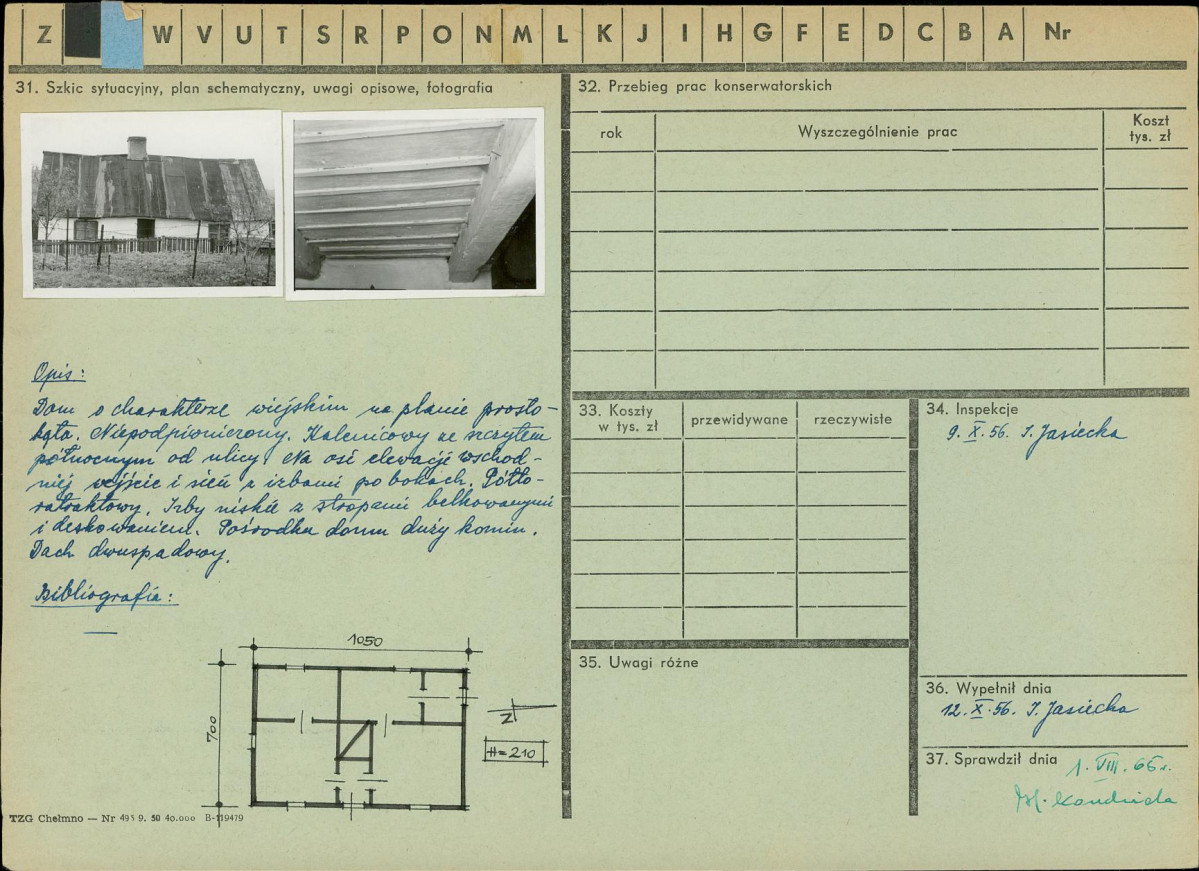 Z W V U T S R P O N M L K J I H G F E D C B A Nr
31. Szkic sytuacyjny, plan schematyczny, uwagi opisowe, fotografia
Opis:
Dom o charakterze wiejskim na planie prosto-
kąta. Niepodpiwniczony. Kalenicowy ze szczytem
północnym od ulicy. Na osi elewacji wschod-
niej wejście i sień z izbami po bokach. Półto-
ratraktowy. Izby niskie z stropami belkowanymi
i deskowaniem. Pośrodku domu duży komin.
Dach dwuspadowy.
Bibliografia:
—
1050
700
Z
H=210
TZG Chełmno — Nr 495 9. 50 40.000 B-119479
32. Przebieg prac konserwatorskich
rok
Wyszczególnienie prac
Koszt
tys. zł
33. Koszty
w tys. zł
przewidywane
rzeczywiste
34. Inspekcje
9. X. 56. I. Jasiecka
35. Uwagi różne
36. Wypełnił dnia
12. X. 56. I. Jasiecka
37. Sprawdził dnia
1. VIII. 65r.